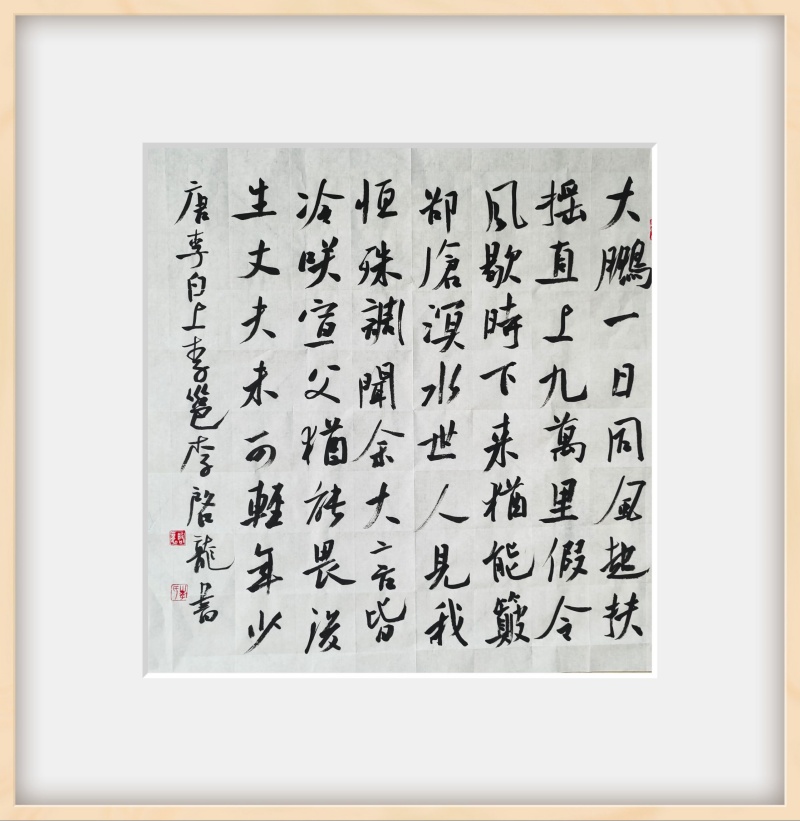 大鵬一日同風起扶
搖直上九萬里假令
風歇時下来猶能簸
卻滄溟水世人見我
恒殊調聞余大言皆
冷咲宣父猶能畏後
生丈夫未可輕年少
唐李白上李邕李啓龍書